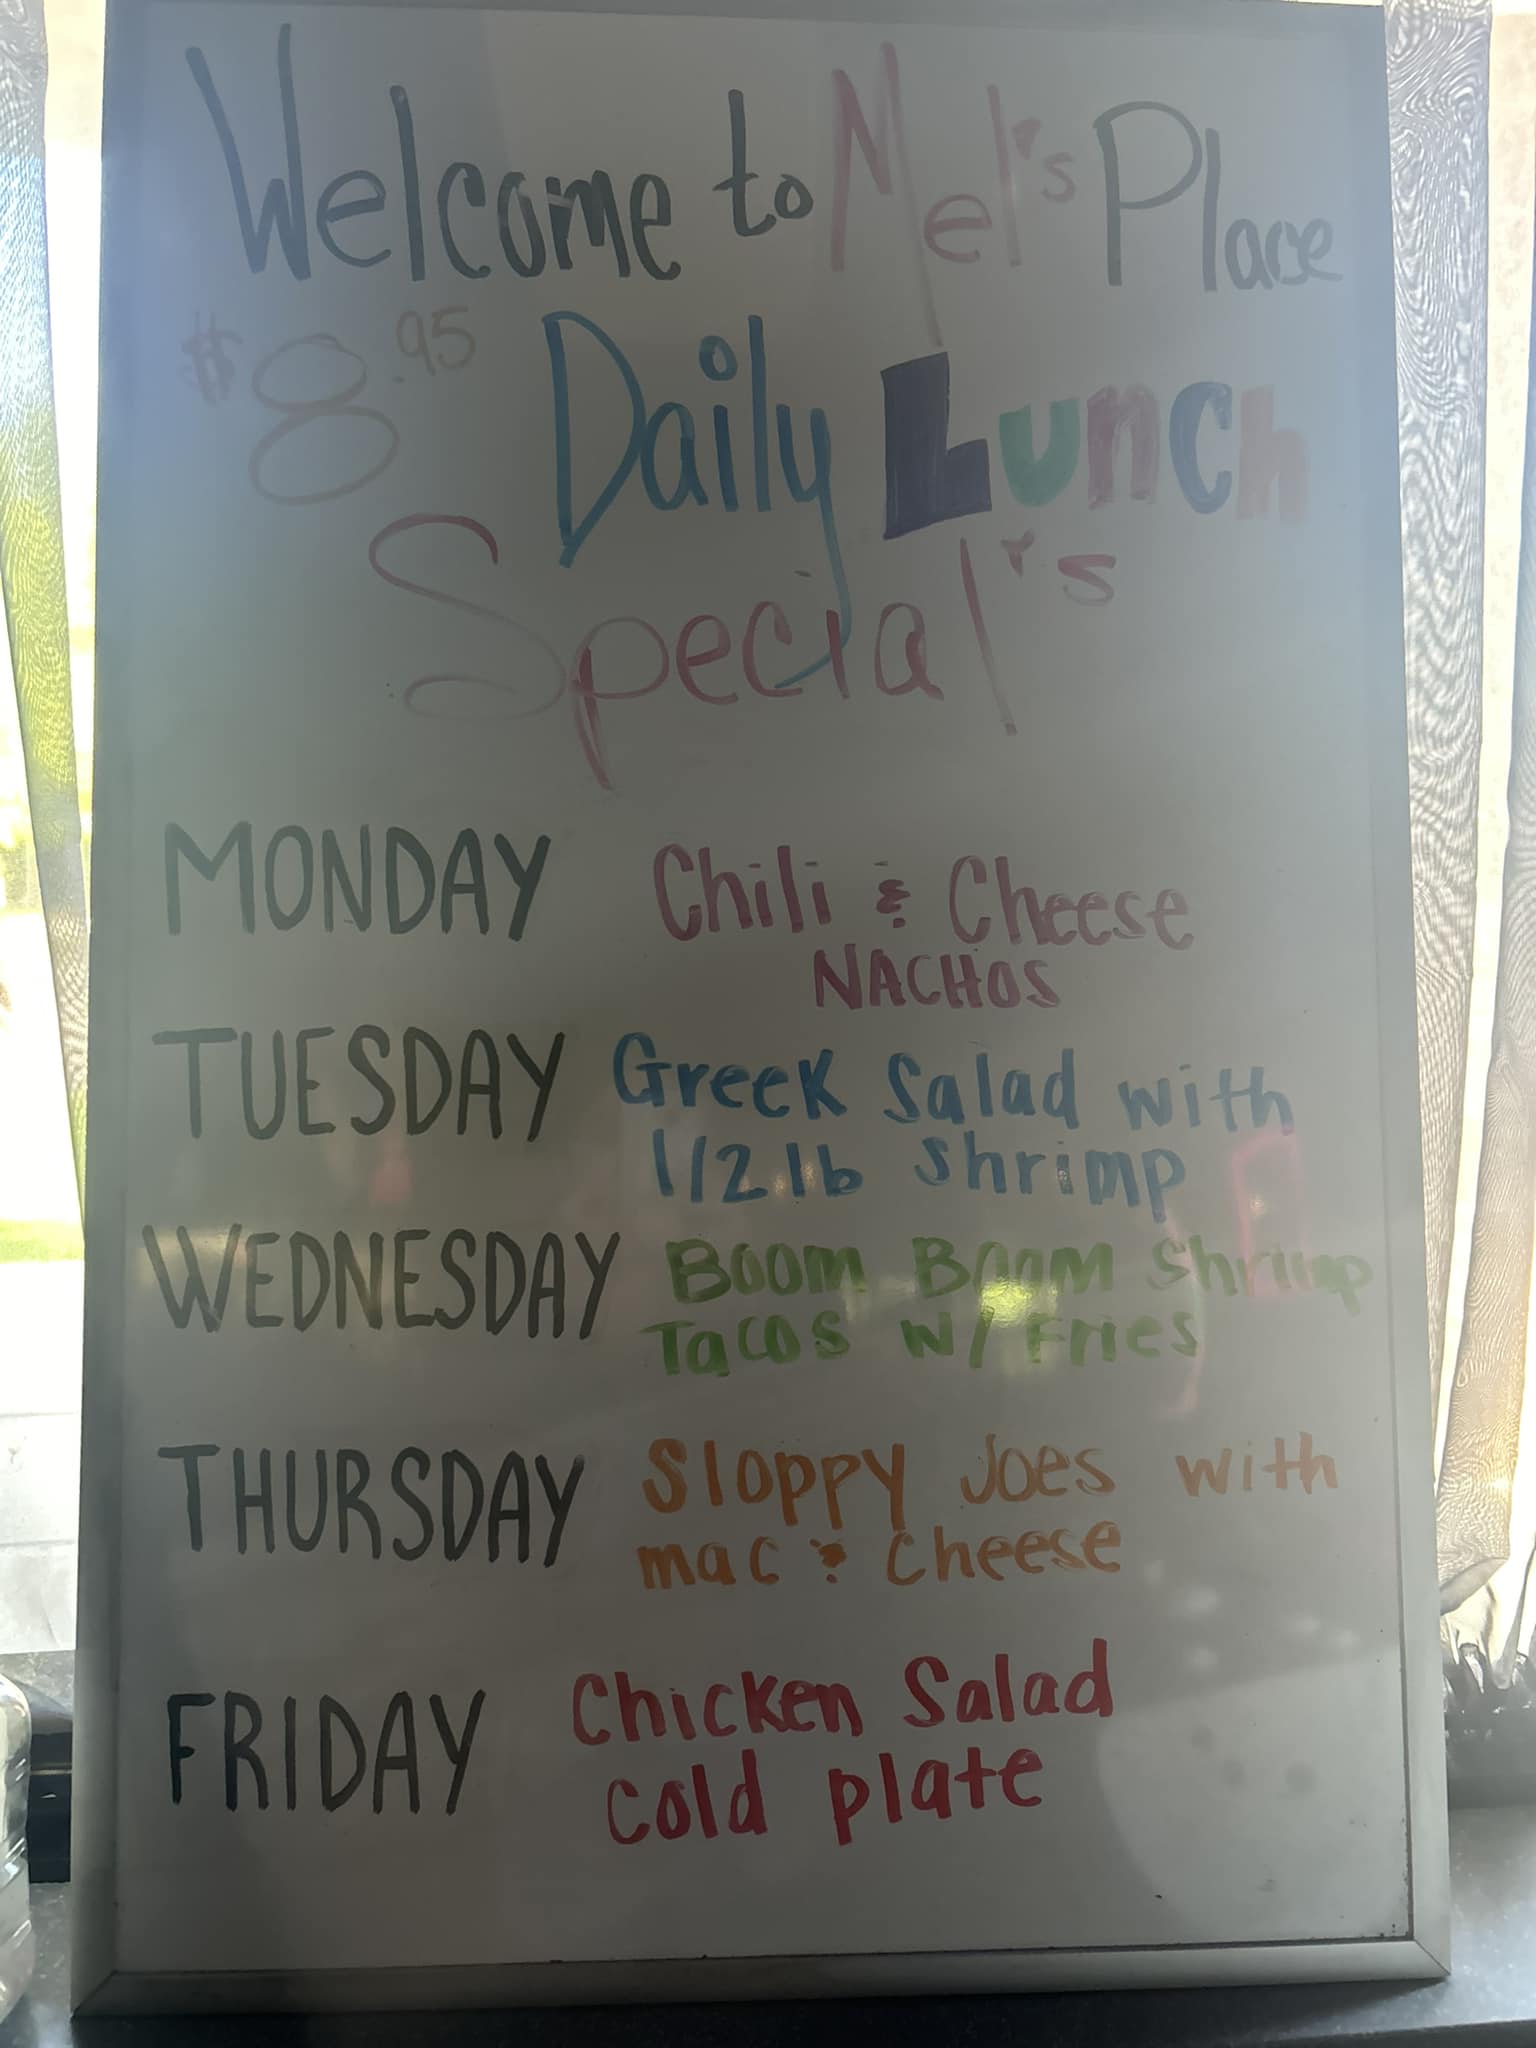 Welcome to Mel's Place
$8.95 Daily Lunch
Special's
MONDAY Chili & Cheese
NACHOS
TUESDAY Greek Salad with
1/2 lb shrimp
WEDNESDAY Boom Boom Shrimp
Tacos w/ Fries
THURSDAY Sloppy Joes with
mac & cheese
FRIDAY Chicken Salad
cold plate